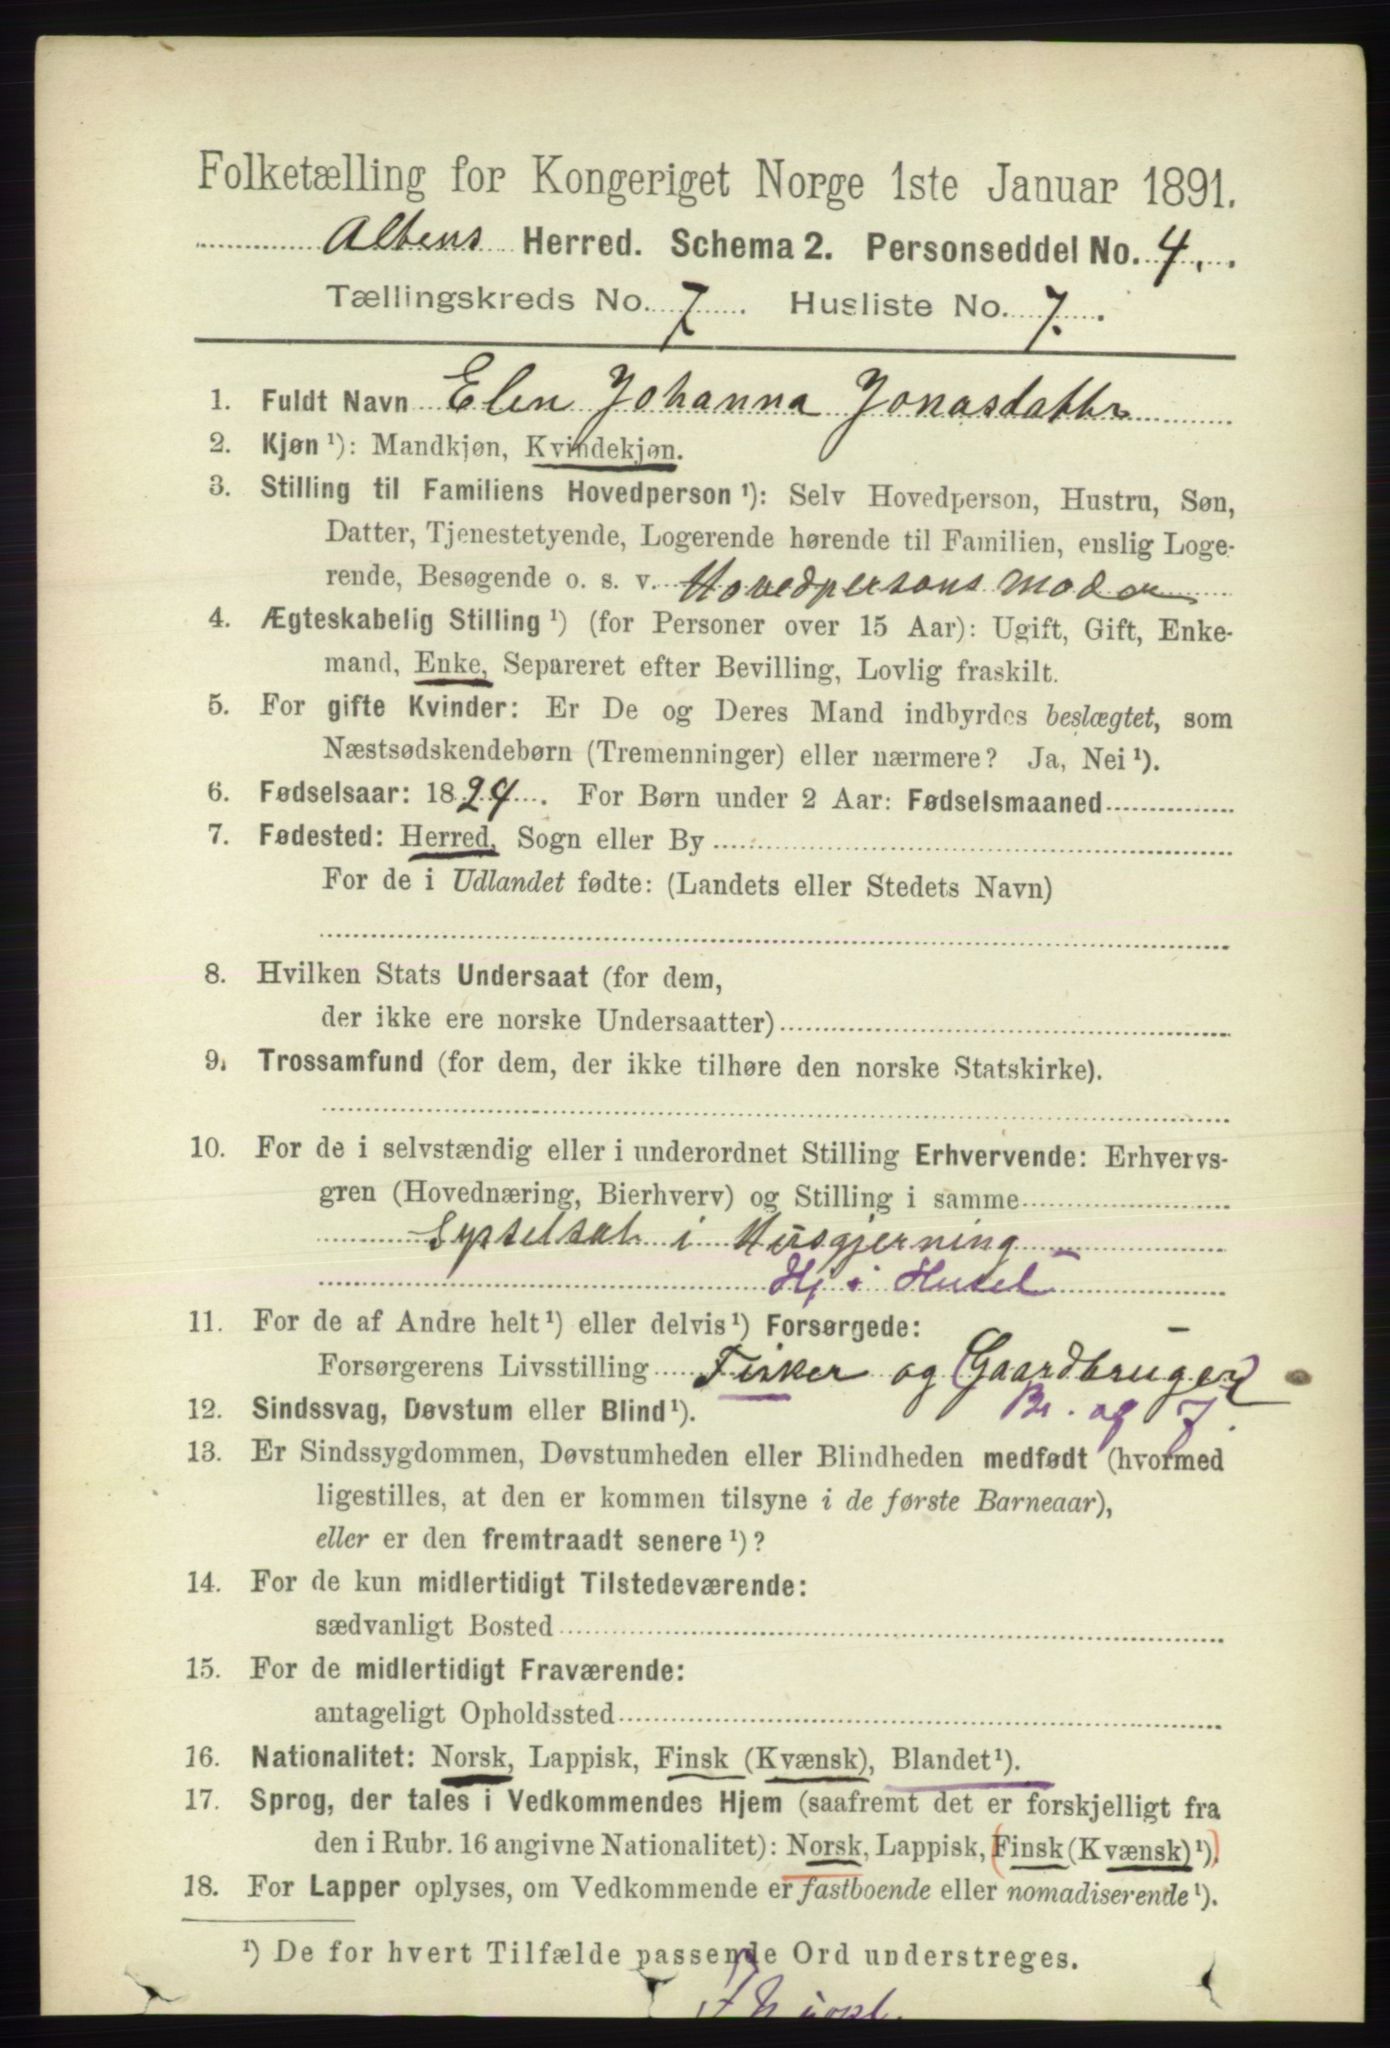 Folketælling for Kongeriget Norge 1ste Januar 1891.
Altens Herred. Schema 2. Personseddel No. 4.
Tællingskreds No. 7. Husliste No. 7.
1. Fuldt Navn Elen Johanna Jonasdatter
2. Kjøn ¹): Mandkjøn, Kvindekjøn.
3. Stilling til Familiens Hovedperson ¹): Selv Hovedperson, Hustru, Søn,
Datter, Tjenestetyende, Logerende hørende til Familien, enslig Loge-
rende, Besøgende o. s. v. Hovedpersons Moder
4. Ægteskabelig Stilling ¹) (for Personer over 15 Aar): Ugift, Gift, Enke-
mand, Enke, Separeret efter Bevilling, Lovlig fraskilt.
5. For gifte Kvinder: Er De og Deres Mand indbyrdes beslægtet, som
Næstsødskendebørn (Tremenninger) eller nærmere? Ja, Nei ¹).
6. Fødselsaar: 1824. For Børn under 2 Aar: Fødselsmaaned
7. Fødested: Herred, Sogn eller By
For de i Udlandet fødte: (Landets eller Stedets Navn)
8. Hvilken Stats Undersaat (for dem,
der ikke ere norske Undersaatter)
9. Trossamfund (for dem, der ikke tilhøre den norske Statskirke).
10. For de i selvstændig eller i underordnet Stilling Erhvervende: Erhvervs-
gren (Hovednæring, Bierhverv) og Stilling i samme
Sysselsat i Husgjerning
Hj i Huset
11. For de af Andre helt ¹) eller delvis ¹) Forsørgede:
Forsørgerens Livsstilling Fisker og Gaardbruger
12. Sindssvag, Døvstum eller Blind ¹). Br. og F.
13. Er Sindssygdommen, Døvstumheden eller Blindheden medfødt (hvormed
ligestilles, at den er kommen tilsyne i de første Barneaar),
eller er den fremtraadt senere ¹)?
14. For de kun midlertidigt Tilstedeværende:
sædvanligt Bosted
15. For de midlertidigt Fraværende:
antageligt Opholdssted
16. Nationalitet: Norsk, Lappisk, Finsk (Kvænsk), Blandet ¹).
17. Sprog, der tales i Vedkommendes Hjem (saafremt det er forskjelligt fra
den i Rubr. 16 angivne Nationalitet): Norsk, Lappisk, Finsk (Kvænsk) ¹).
18. For Lapper oplyses, om Vedkommende er fastboende eller nomadiserende ¹).
¹) De for hvert Tilfælde passende Ord understreges.